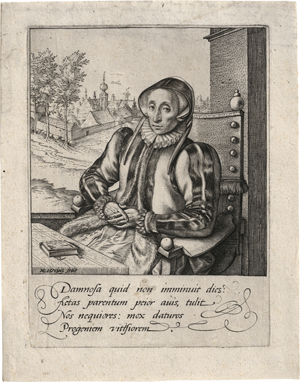 Damnosa quid non imminuit dies?
Aetas parentum peior auis, tulit
Nos nequiores: mox daturos
Progeniem vitiosiorem.